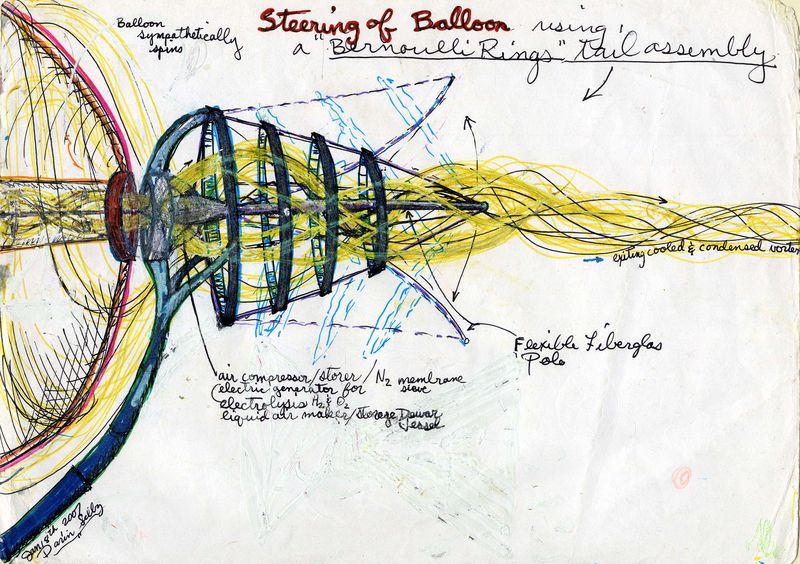 Steering of Balloon using
a "Bernoulli Rings" tail assembly
Balloon
sympathetically
spins
exiting cooled & condensed vortex
Flexible Fiberglas
Pole
air compressor/storer/N2 membrane
(electric generator for sieve
electrolysis H2 & O2
liquid air maker/storage Dewar
Vessel
Jan 18th 2007
Darin Selby